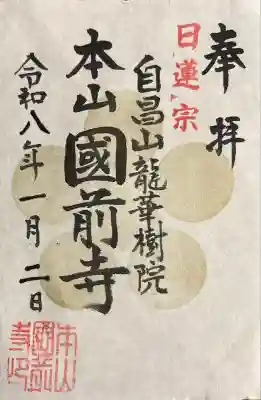 奉拝
日蓮宗
自昌山龍華樹院
本山國前寺
令和八年一月二日
本山
國前
寺印